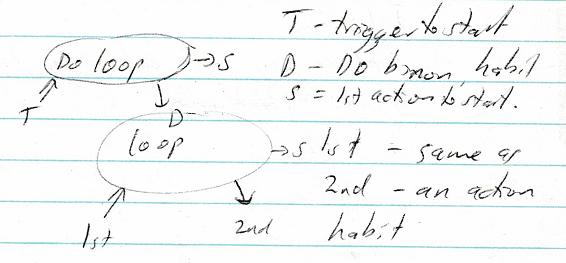 T - trigger to start
Do loop → s
D - Do habit
T
s = 1st action to start.
D
loop
→ s
1st - same as
2nd - an action
1st
2nd
habit